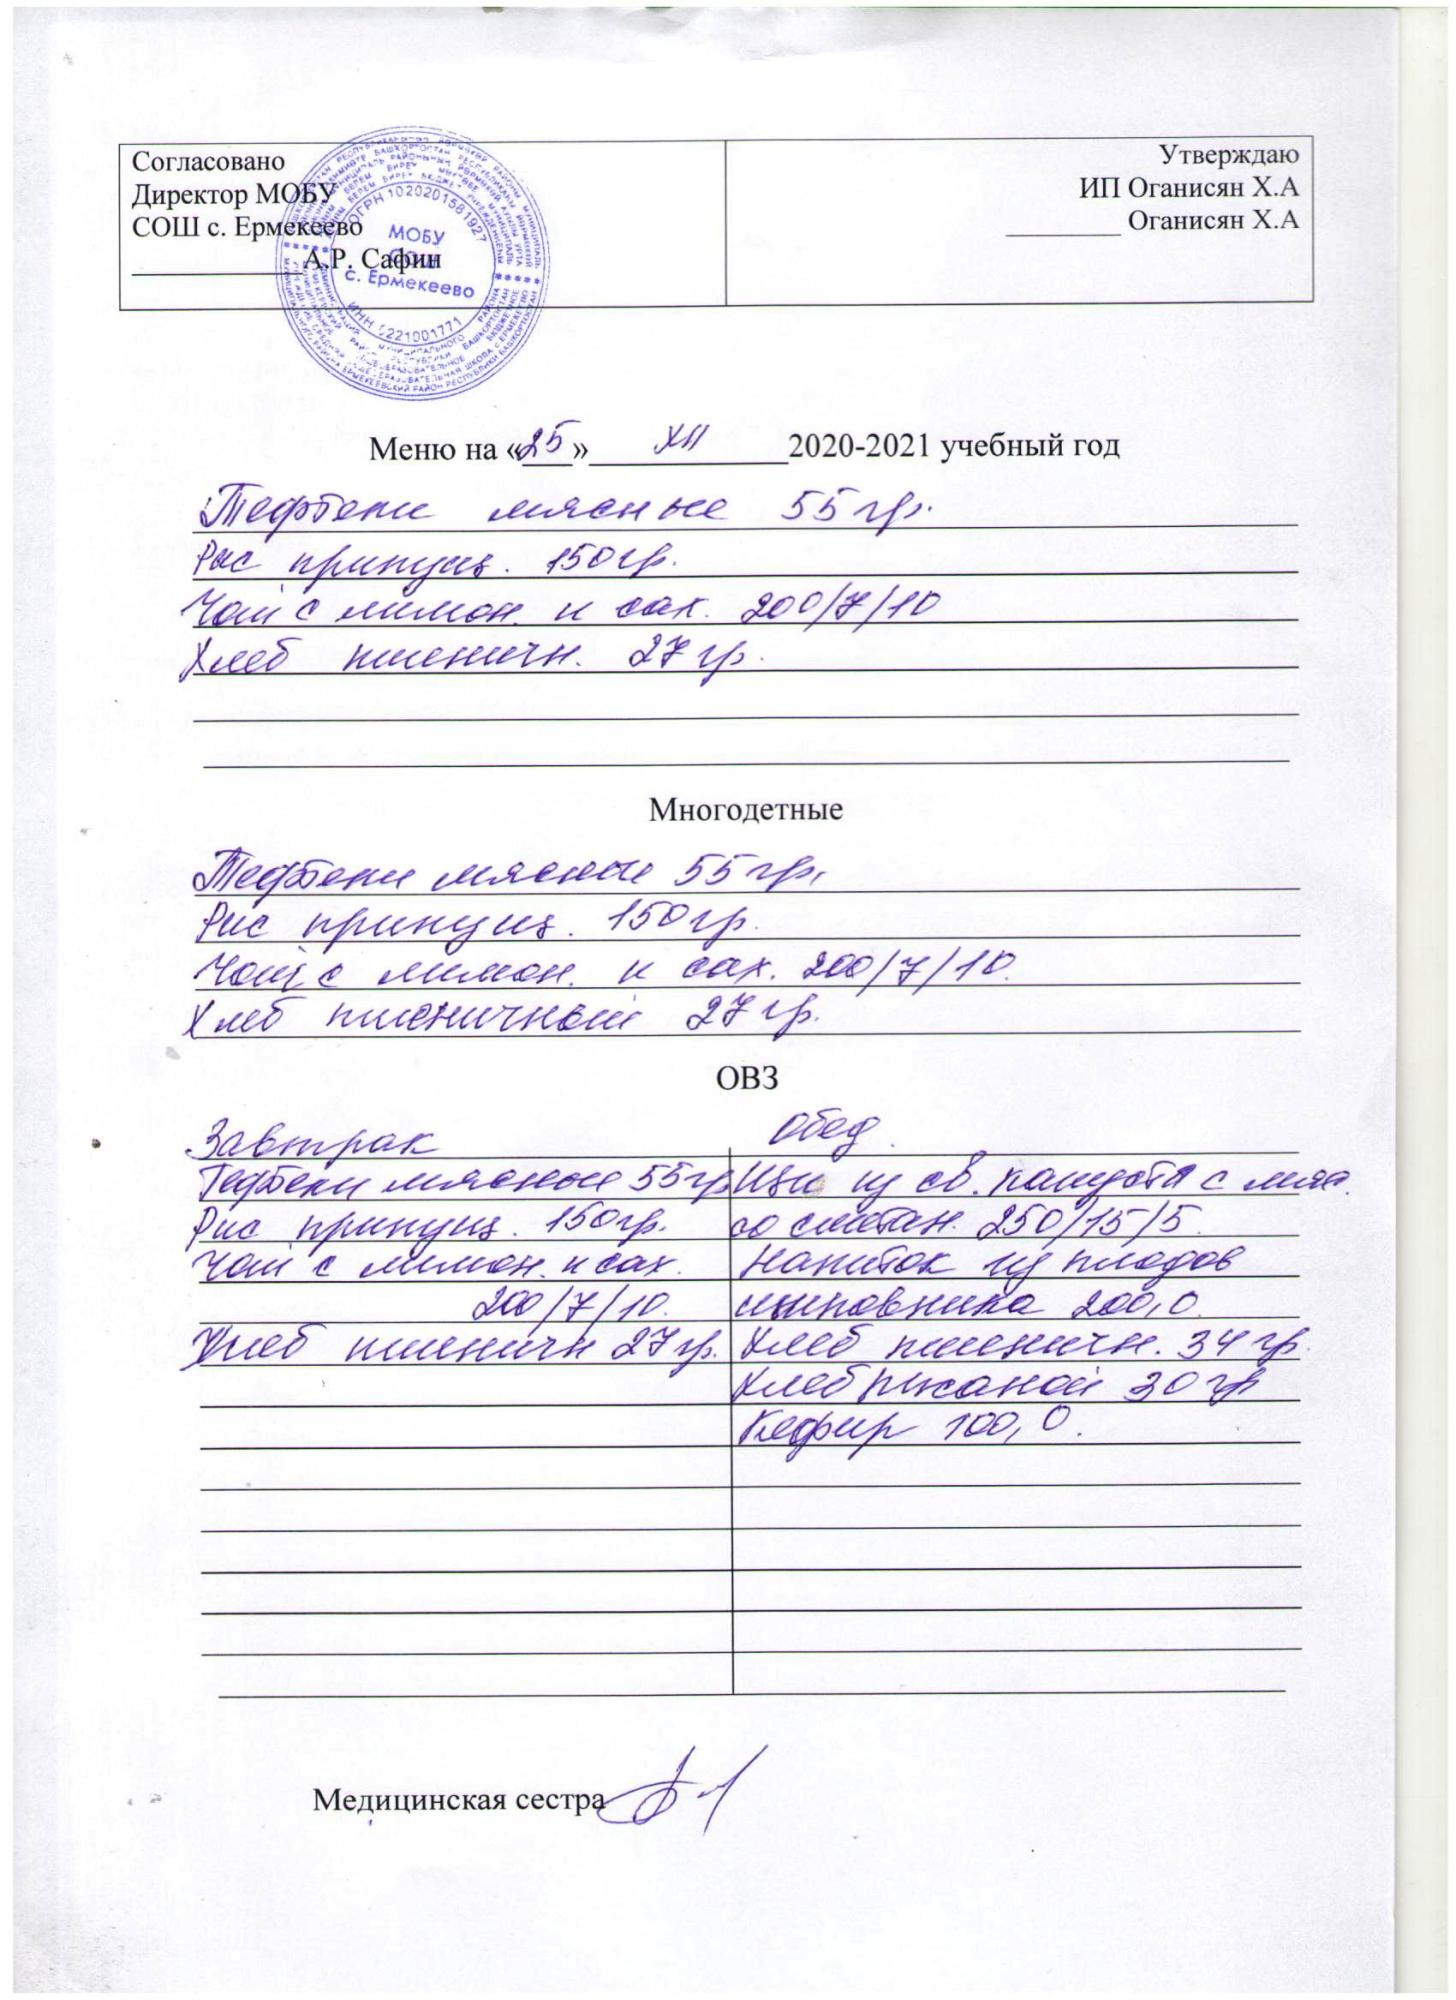 Согласовано
Директор МОБУ
СОШ с. Ермекеево
____________А.Р. Сафин
Утверждаю
ИП Оганисян Х.А
________ Оганисян Х.А
ОГРН 1020201581927
МОБУ
СОШ
с. Ермекеево
ИНН 0221001771
Меню на «25» XII 2020-2021 учебный год
Тефтели мясные 55 гр.
Рис припущ. 150 гр.
Чай с лимон. и сах. 200/7/10
Хлеб пшеничн. 27 гр.
Многодетные
Тефтели мясные 55 гр.
Рис припущ. 150 гр.
Чай с лимон. и сах. 200/7/10.
Хлеб пшеничный 27 гр.
ОВЗ
Завтрак
Тефтели мясные 55 гр
Рис припущ. 150 гр.
Чай с лимон. и сах.
200/7/10.
Хлеб пшеничн 27 гр.
Обед.
Щи из св. капусты с мяс.
со сметан. 250/15/5.
Напиток из плодов
шиповника 200,0.
Хлеб пшеничн. 34 гр.
Хлеб ржаной 30 гр
Кефир 100,0.
Медицинская сестра